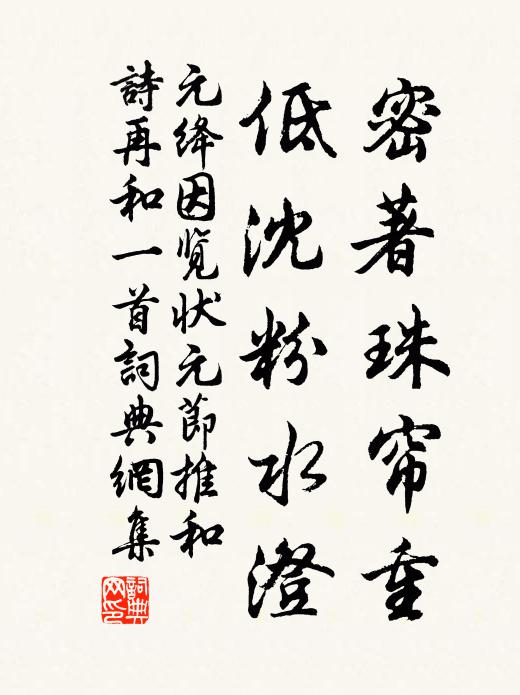 密著珠帘重
低沈粉水澄
元绛因览状元節推和
詩再和一首詞典網集
詞典
网印